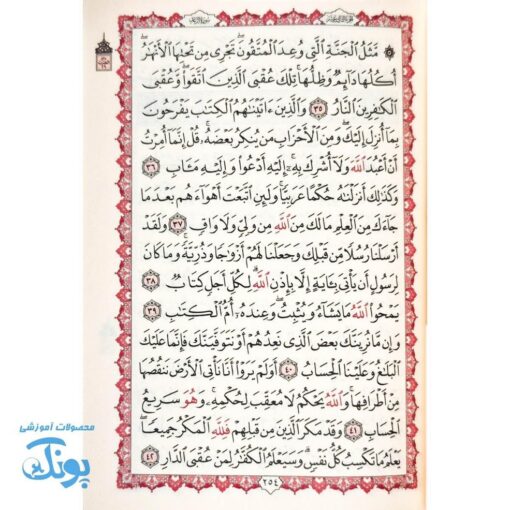 مَّثَلُ ٱلْجَنَّةِ ٱلَّتِى وُعِدَ ٱلْمُتَّقُونَ تَجْرِى مِن تَحْتِهَا ٱلْأَنْهَٰرُ
أُكُلُهَا دَآئِمٌ وَظِلُّهَا تِلْكَ عُقْبَى ٱلَّذِينَ ٱتَّقَوا۟ وَّعُقْبَى
ٱلْكَٰفِرِينَ ٱلنَّارُ ٣٥ وَٱلَّذِينَ ءَاتَيْنَٰهُمُ ٱلْكِتَٰبَ يَفْرَحُونَ
بِمَآ أُنزِلَ إِلَيْكَ وَمِنَ ٱلْأَحْزَابِ مَن يُنكِرُ بَعْضَهُۥ قُلْ إِنَّمَآ أُمِرْتُ
أَنْ أَعْبُدَ ٱللَّهَ وَلَآ أُشْرِكَ بِهِۦٓ إِلَيْهِ أَدْعُوا۟ وَإِلَيْهِ مَـَٔابِ ٣٦
وَكَذَٰلِكَ أَنزَلْنَٰهُ حُكْمًا عَرَبِيًّا وَلَئِنِ ٱتَّبَعْتَ أَهْوَآءَهُم بَعْدَمَا
جَآءَكَ مِنَ ٱلْعِلْمِ مَالَكَ مِنَ ٱللَّهِ مِن وَلِىٍّ وَلَا وَاقٍ ٣٧ وَلَقَدْ
أَرْسَلْنَا رُسُلًا مِّن قَبْلِكَ وَجَعَلْنَا لَهُمْ أَزْوَٰجًا وَذُرِّيَّةً وَمَا كَانَ
لِرَسُولٍ أَن يَأْتِىَ بِـَٔايَةٍ إِلَّا بِإِذْنِ ٱللَّهِ لِكُلِّ أَجَلٍ كِتَابٌ ٣٨
يَمْحُوا۟ ٱللَّهُ مَا يَشَآءُ وَيُثْبِتُ وَعِندَهُۥٓ أُمُّ ٱلْكِتَٰبِ ٣٩
وَإِن مَّا نُرِيَنَّكَ بَعْضَ ٱلَّذِى نَعِدُهُمْ أَوْ نَتَوَفَّيَنَّكَ فَإِنَّمَا عَلَيْكَ
ٱلْبَلَٰغُ وَعَلَيْنَا ٱلْحِسَابُ ٤٠ أَوَلَمْ يَرَوْا۟ أَنَّا نَأْتِى ٱلْأَرْضَ نَنقُصُهَا
مِنْ أَطْرَافِهَا وَٱللَّهُ يَحْكُمُ لَا مُعَقِّبَ لِحُكْمِهِۦ وَهُوَ سَرِيعُ
ٱلْحِسَابِ ٤١ وَقَدْ مَكَرَ ٱلَّذِينَ مِن قَبْلِهِمْ فَلِلَّهِ ٱلْمَكْرُ جَمِيعًا
يَعْلَمُ مَا تَكْسِبُ كُلُّ نَفْسٍ وَسَيَعْلَمُ ٱلْكُفَّٰرُ لِمَنْ عُقْبَى ٱلدَّارِ ٤٢
٢٥٤
محصولات آموزشی
پونک